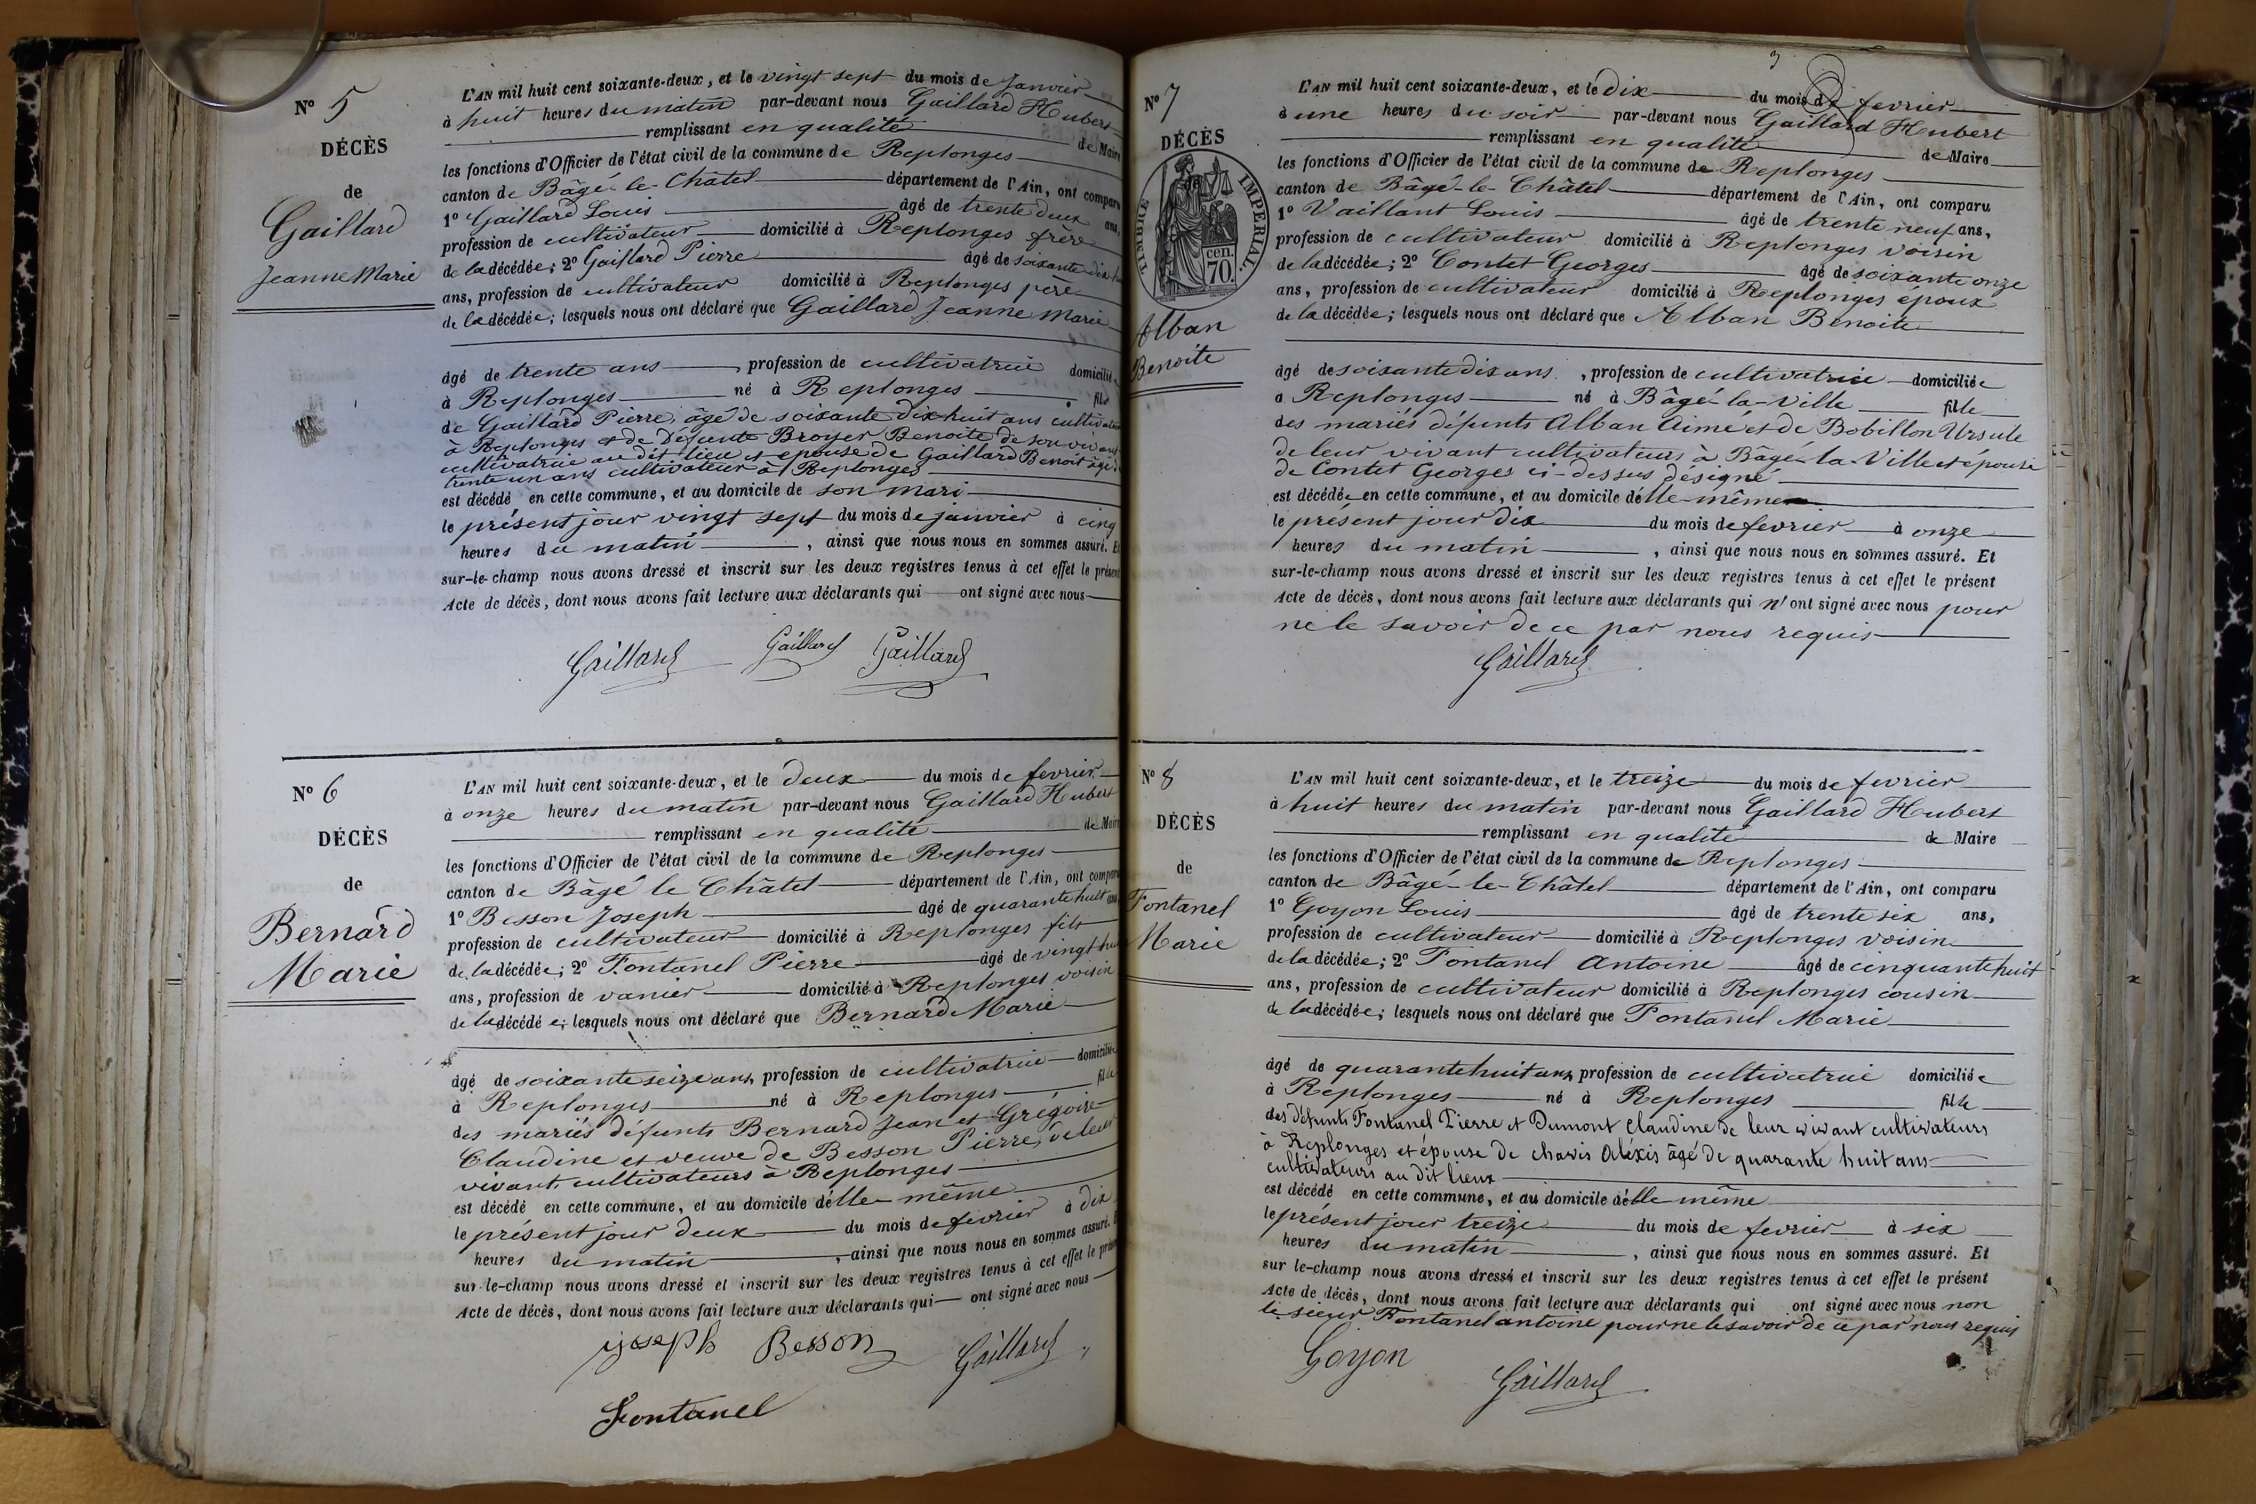 N° 5
DÉCÈS
de
Gaillard
Jeanne Marie
L'AN mil huit cent soixante-deux, et le vingt sept du mois de Janvier
à huit heures du matin par-devant nous Gaillard Hubert
remplissant en qualité de Maire
les fonctions d'Officier de l'état civil de la commune de Replonges
canton de Bâgé-le-Châtel département de l'Ain, ont comparu
1° Gaillard Louis âgé de trente deux ans,
profession de cultivateur domicilié à Replonges frère
de la décédée; 2° Gaillard Pierre âgé de soixante dix hu
ans, profession de cultivateur domicilié à Replonges père
de la décédée; lesquels nous ont déclaré que Gaillard Jeanne Marie
âgé de trente ans, profession de cultivatrice domiciliée
à Replonges né à Replonges fille
de Gaillard Pierre, âgé de soixante dix huit ans cultivateur
à Replonges et de Défunte Broyer Benoite de son vivant
cultivatrice au dit lieu et épouse de Gaillard Benoit âgé de
trente un ans cultivateur à Replonges
est décédé en cette commune, et au domicile de son mari
le présent jour vingt sept du mois de janvier à cinq
heures du matin, ainsi que nous nous en sommes assuré. Et
sur-le-champ nous avons dressé et inscrit sur les deux registres tenus à cet effet le présent
Acte de décès, dont nous avons fait lecture aux déclarants qui ont signé avec nous
Gaillard Gaillard Gaillard
N° 6
DÉCÈS
de
Bernard
Marie
L'AN mil huit cent soixante-deux, et le deux du mois de fevrier
à onze heures du matin par-devant nous Gaillard Hubert
remplissant en qualité de Maire
les fonctions d'Officier de l'état civil de la commune de Replonges
canton de Bâgé le Châtel département de l'Ain, ont comparu
1° Besson Joseph âgé de quarante huit ans
profession de cultivateur domicilié à Replonges fils
de la décédée; 2° Fontanel Pierre âgé de vingt hui
ans, profession de vanier domicilié à Replonges voisin
de la décédée; lesquels nous ont déclaré que Bernard Marie
âgé de soixante seize ans, profession de cultivatrice domiciliée
à Replonges né à Replonges fille
des mariés défunts Bernard Jean et Grégoire
Claudine et veuve de Besson Pierre, de leur
vivant cultivateurs à Replonges
est décédé en cette commune, et au domicile d'elle-même
le présent jour deux du mois de fevrier à dix
heures du matin, ainsi que nous nous en sommes assuré. E
sur-le-champ nous avons dressé et inscrit sur les deux registres tenus à cet effet le présent
Acte de décès, dont nous avons fait lecture aux déclarants qui ont signé avec nous
joseph Besson Gaillard
Fontanel
3
N° 7
DÉCÈS
TIMBRE IMPERIAL.
70 cen.
Alban
Benoite
L'AN mil huit cent soixante-deux, et le dix du mois de fevrier
à une heures du soir par-devant nous Gaillard Hubert
remplissant en qualité de Maire
les fonctions d'Officier de l'état civil de la commune de Replonges
canton de Bâgé-le-Châtel département de l'Ain, ont comparu
1° Vaillant Louis âgé de trente neuf ans,
profession de cultivateur domicilié à Replonges voisin
de la décédée; 2° Contet Georges âgé de soixante onze
ans, profession de cultivateur domicilié à Replonges époux
de la décédée; lesquels nous ont déclaré que Alban Benoite
âgé de soixante dix ans, profession de cultivatrice domiciliée
à Replonges né à Bâgé-la-Ville fille
des mariés défunts Alban Aimé et de Bobillon Ursule
de leur vivant cultivateurs à Bâgé-la-Ville et épouse
de Contet Georges ci-dessus désigné
est décédée en cette commune, et au domicile d'elle-même
le présent jour dix du mois de fevrier à onze
heures du matin, ainsi que nous nous en sommes assuré. Et
sur-le-champ nous avons dressé et inscrit sur les deux registres tenus à cet effet le présent
Acte de décès, dont nous avons fait lecture aux déclarants qui n'ont signé avec nous pour
ne le savoir de ce par nous requis
Gaillard
N° 8
DÉCÈS
de
Fontanel
Marie
L'AN mil huit cent soixante-deux, et le treize du mois de fevrier
à huit heures du matin par-devant nous Gaillard Hubert
remplissant en qualité de Maire
les fonctions d'Officier de l'état civil de la commune de Replonges
canton de Bâgé-le-Châtel département de l'Ain, ont comparu
1° Goyon Louis âgé de trente six ans,
profession de cultivateur domicilié à Replonges voisin
de la décédée; 2° Fontanel Antoine âgé de cinquante huit
ans, profession de cultivateur domicilié à Replonges cousin
de la décédée; lesquels nous ont déclaré que Fontanel Marie
âgé de quarante huit ans, profession de cultivatrice domiciliée
à Replonges né à Replonges fille
des défunts Fontanel Pierre et Dumont Claudine de leur vivant cultivateurs
à Replonges et épouse de chavis Aléxis âgé de quarante huit ans
cultivateurs au dit lieux
est décédé en cette commune, et au domicile d'elle même
le présent jour treize du mois de fevrier à six
heures du matin, ainsi que nous nous en sommes assuré. Et
sur le-champ nous avons dressé et inscrit sur les deux registres tenus à cet effet le présent
Acte de décès, dont nous avons fait lecture aux déclarants qui ont signé avec nous non
le sieur Fontanel antoine pour ne le savoir de ce par nous requis
Goyon
Gaillard